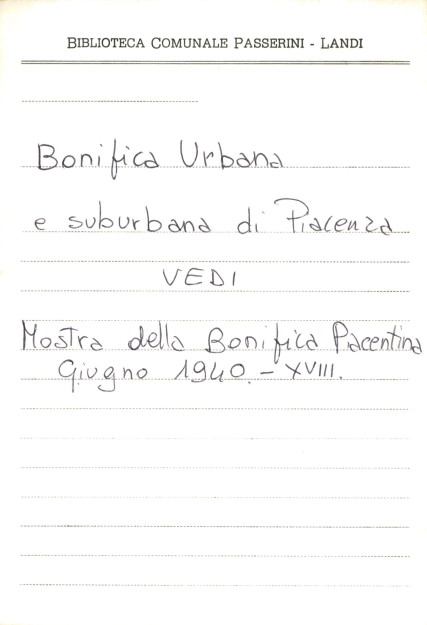 BIBLIOTECA COMUNALE PASSERINI - LANDI
Bonifica Urbana
e suburbana di Piacenza
VEDI
Mostra della Bonifica Piacentina
Giugno 1940. - XVIII.